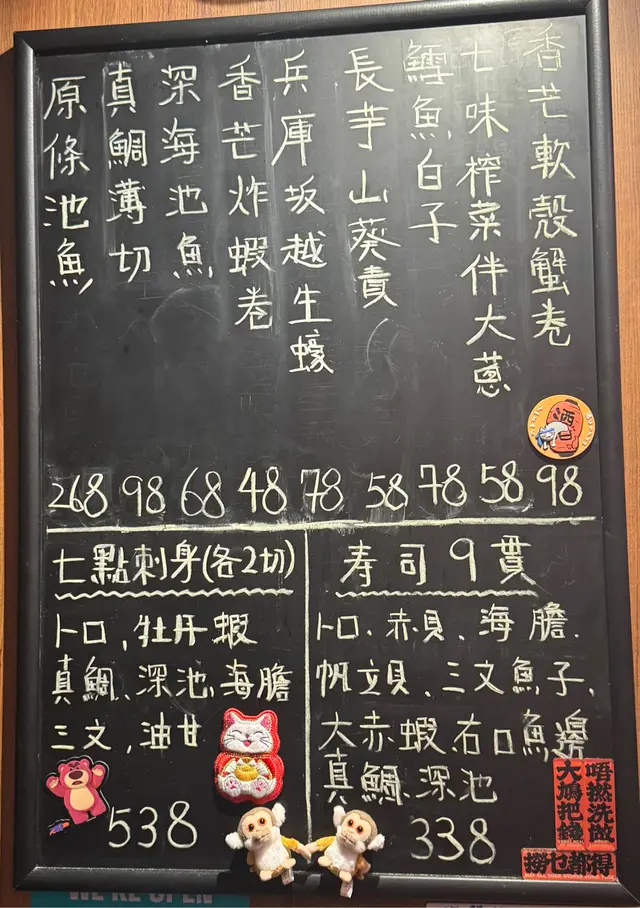 香芒軟殼蟹卷
七味榨菜伴大蔥
鱈魚白子
長芋山葵責
兵庫坂越生蠔
香芒炸蝦卷
深海池魚
真鯛薄切
原條池魚
268 98 68 48 78 58 78 58 98
七點刺身(各2切)
トロ、牡丹蝦
真鯛、深池、海膽
三文、油甘
538
寿司9貫
トロ、赤貝、海膽、
帆立貝、三文魚子、
大赤蝦、右口魚邊
真鯛、深池
338
酒
唔撚洗做
大鳩把錢
撈乜都得
WE'RE OPEN